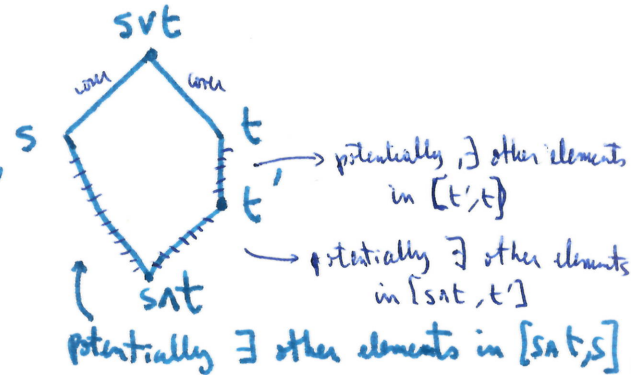 s∨t
cover cover
s t
potentially, ∃ other elements
in [t',t]
t'
potentially ∃ other elements
in [s∧t, t']
s∧t
potentially ∃ other elements in [s∧t,s]